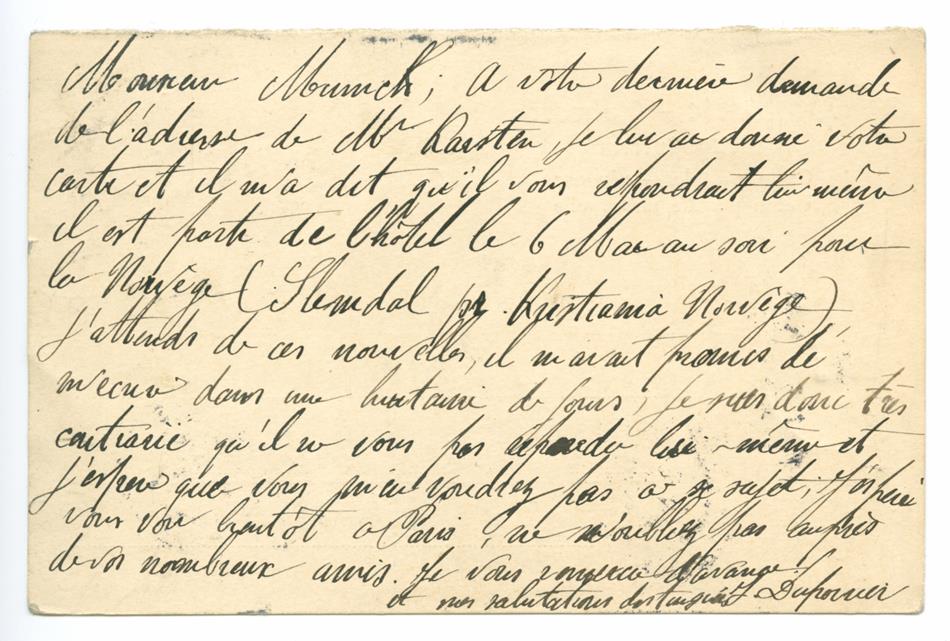 Monsieur Munch; A votre dernière demande
de l'adresse de Mr Karsten, je lui ai donné votre
carte et il m'a dit qu'il vous répondrait lui même
il est parti de l'hôtel le 6 Mai au soir pour
la Norvège (Slemdal pr. Kristiania Norvège)
j'attends de ces nouvelles, il m'avait promis de
m'écrire dans une huitaine de jours, je suis donc très
contrarié qu'il ne vous pas répondu lui-même et
j'espère que vous m'en voudrez pas a ce sujet; J'espère
vous voir bientôt a Paris, ne m'oubliez pas auprès
de vos nombreux amis. Je vous remercie d'avance
et mes salutations distinguées